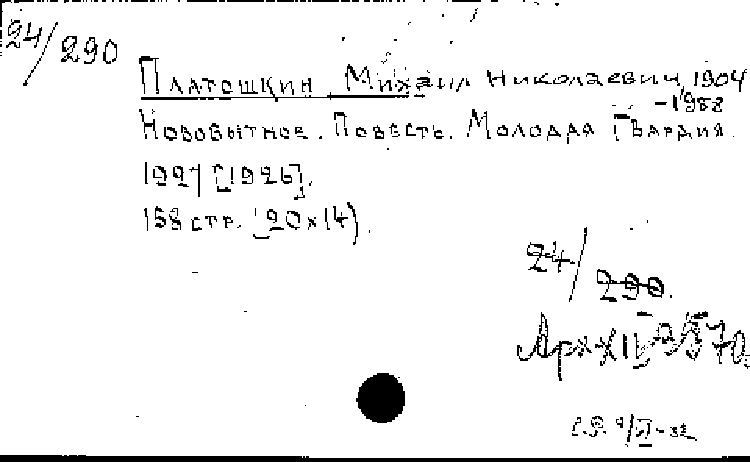 24/290
Платошкин, Михаил Николаевич, 1904
-1958
Новобытное. Повесть. Молодая Гвардия.
1927 [1926].
158 стр. (20×14).
24/290.
Арх XII